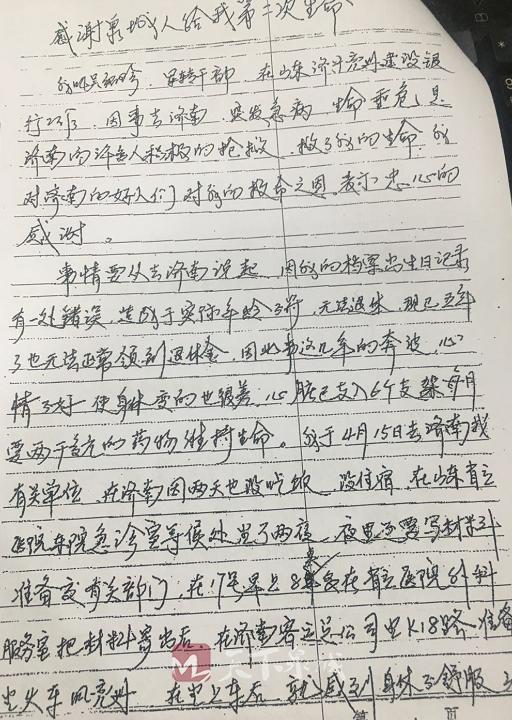 感谢泉城人给我第二次生命
我叫吴 ，军转干部，在山东济宁兖州建设银
行工作，因事去济南，突发急病，生命垂危，是
济南的许多人积极的抢救，救了我的生命，我
对济南的好人们对我的救命之恩，表示忠心的
感谢。
事情要从去济南说起，因我的档案出生日记录
有一处错误，造成于实际年龄不符，无法退休，现已五年
了也无法正常领到退休金，因此事这几年的奔波，心
情不好，使身体变的也很差，心脏已支入6个支架每月
要两千多元的药物维持生命。我于4月15日去济南找
有关单位，在济南因两天也没吃饭，没住宿，在山东省立
医院东院急诊室等候处坐了两夜，夜里还要写材料
准备交有关部门，在17号早上8 在省立医院外科
服务室把材料寄出后，在济南客立 公司坐K18路，准备
坐火车回兖州，在坐上车后，就感到身体不舒服，
天下泉城
第 页